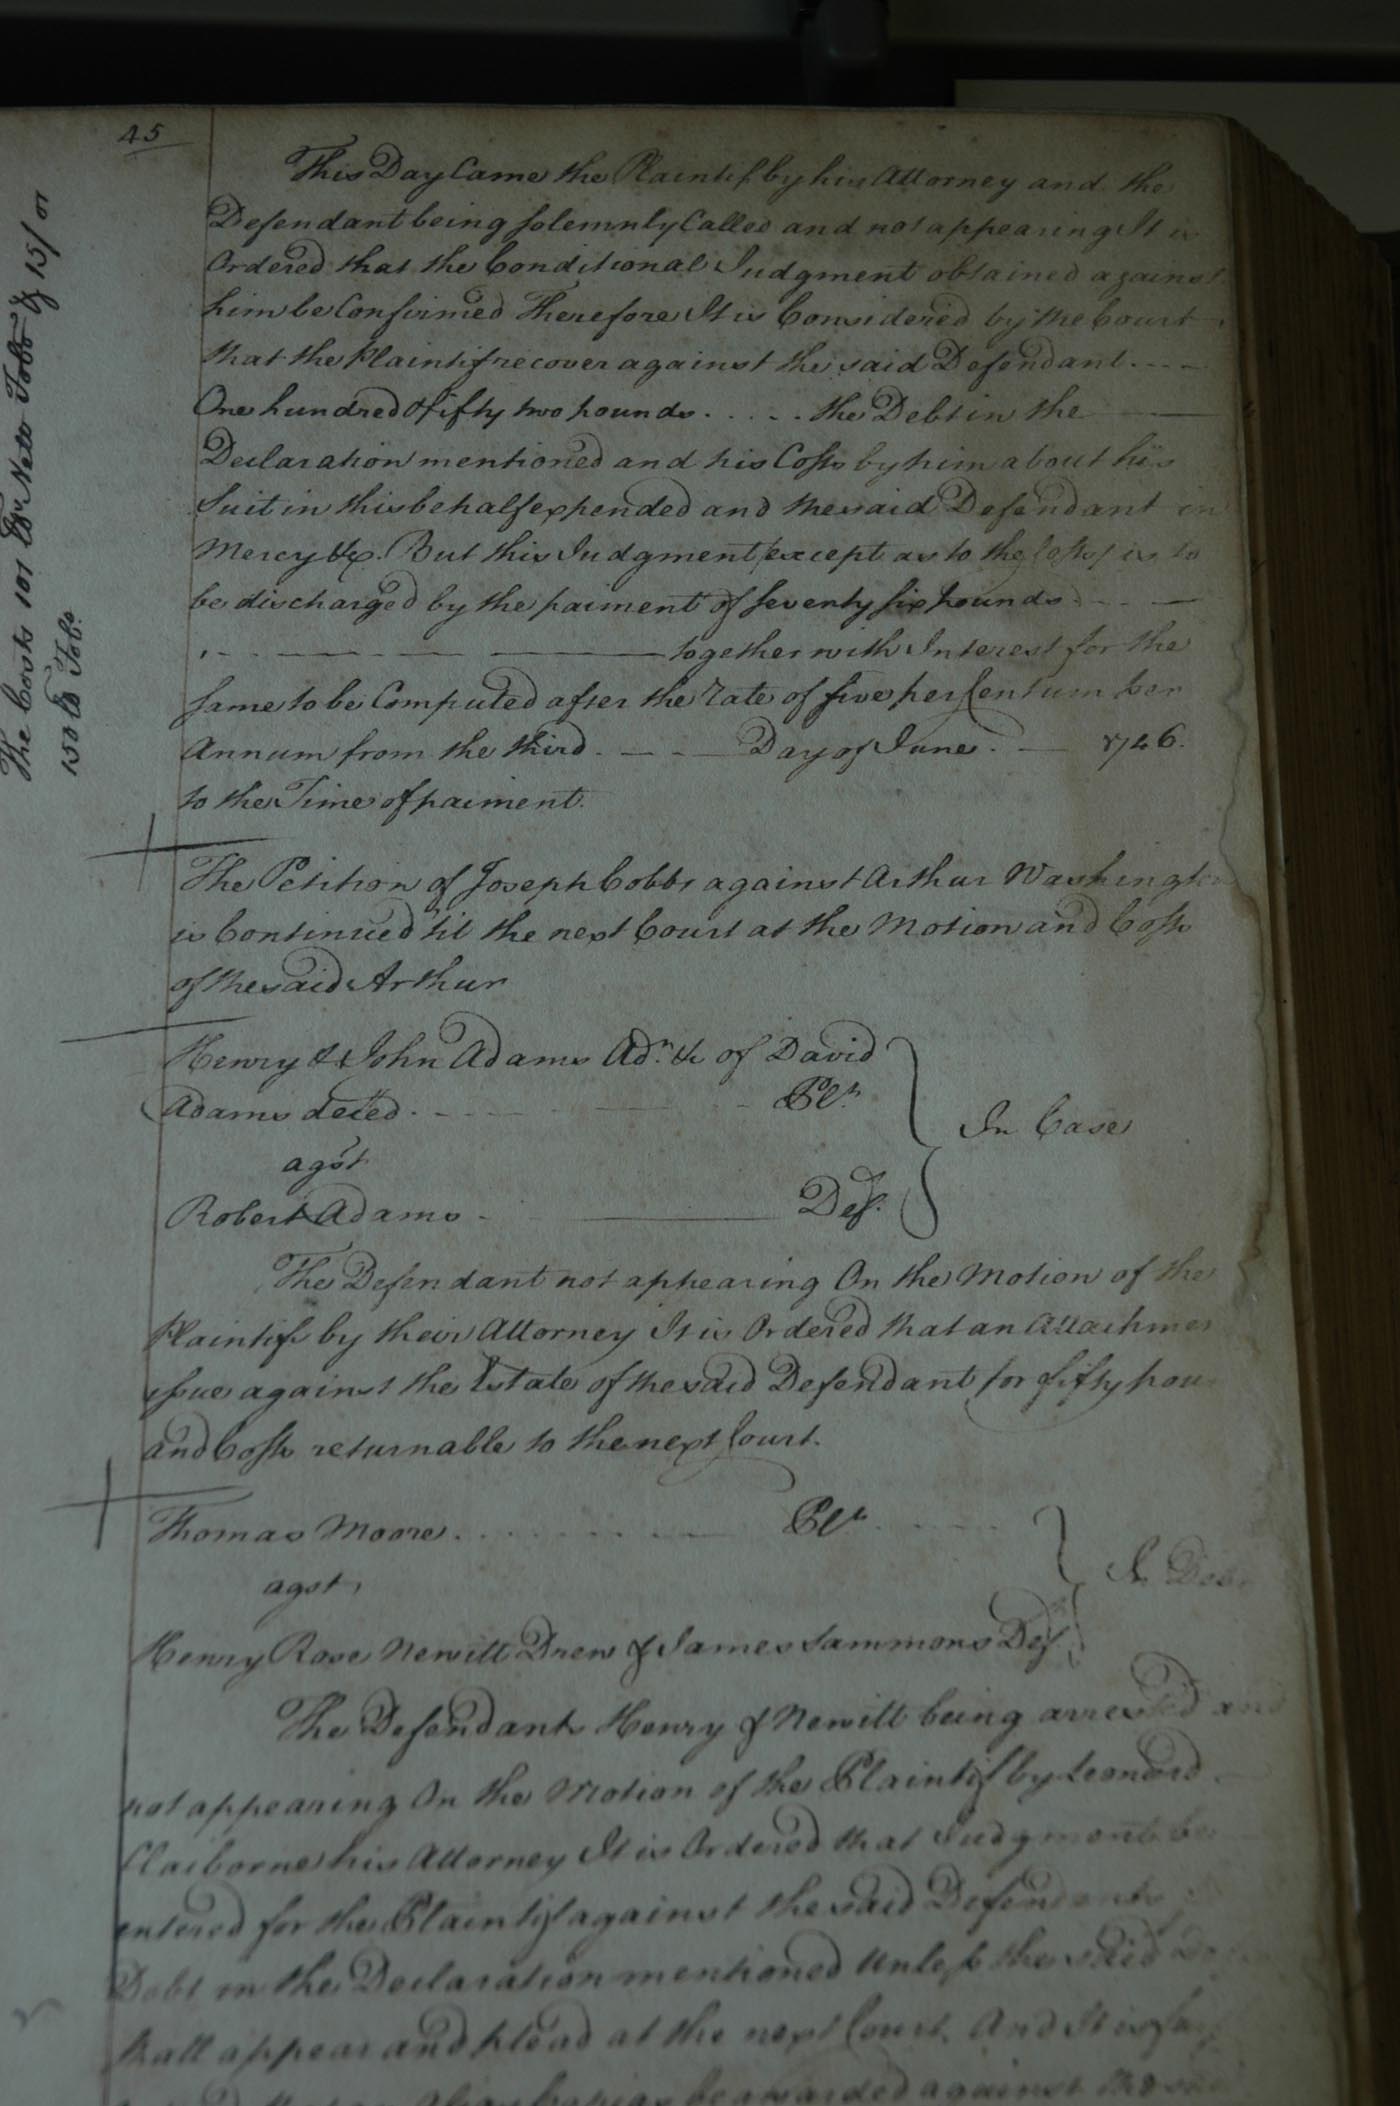 45
The Costs 101 lb Nett Tobo & 15/ or
150 lb Tobo.
This Day Came the Plaintif by his Attorney and the
Defendant being Solemnly Called and not appearing It is
Ordered that the Conditional Judgment obtained against
him be Confirmed Therefore It is Considered by the Court
that the Plaintif recover against the said Defendant
One hundred & fifty two pounds the Debt in the
Declaration mentioned and his Costs by him about his
Suit in this behalf expended and the said Defendant in
Mercy &c. But this Judgment (except as to the Costs) is to
be discharged by the paiment of Seventy six pounds
together with Interest for the
Same to be Computed after the Rate of five per Centum per
Annum from the third Day of June 1746.
to the Time of paiment.
The Petition of Joseph Cobbs against Arthur Washington
is Continued 'til the next Court at the Motion and Costs
of the said Arthur
Henry & John Adams Adrs. &c of David
Adams deced. Pls.
agst
Robert Adams Def.
In Case
The Defendant not appearing On the Motion of the
Plaintifs by their Attorney It is Ordered that an Attachmen
issue against the Estate of the said Defendant for fifty pou
and Costs returnable to the next Court.
Thomas Moore Plt.
agst
Henry Rose Newitt Drew & James Sammons Def.
In Deb
The Defendants Henry & Newitt being arrested and
not appearing On the Motion of the Plaintif by Leonard
Claiborne his Attorney It is Ordered that Judgment be
entered for the Plaintif against the said Defendants
Debt in the Declaration mentioned Unless the said
shall appear and plead at the next Court And It is
be awarded against the